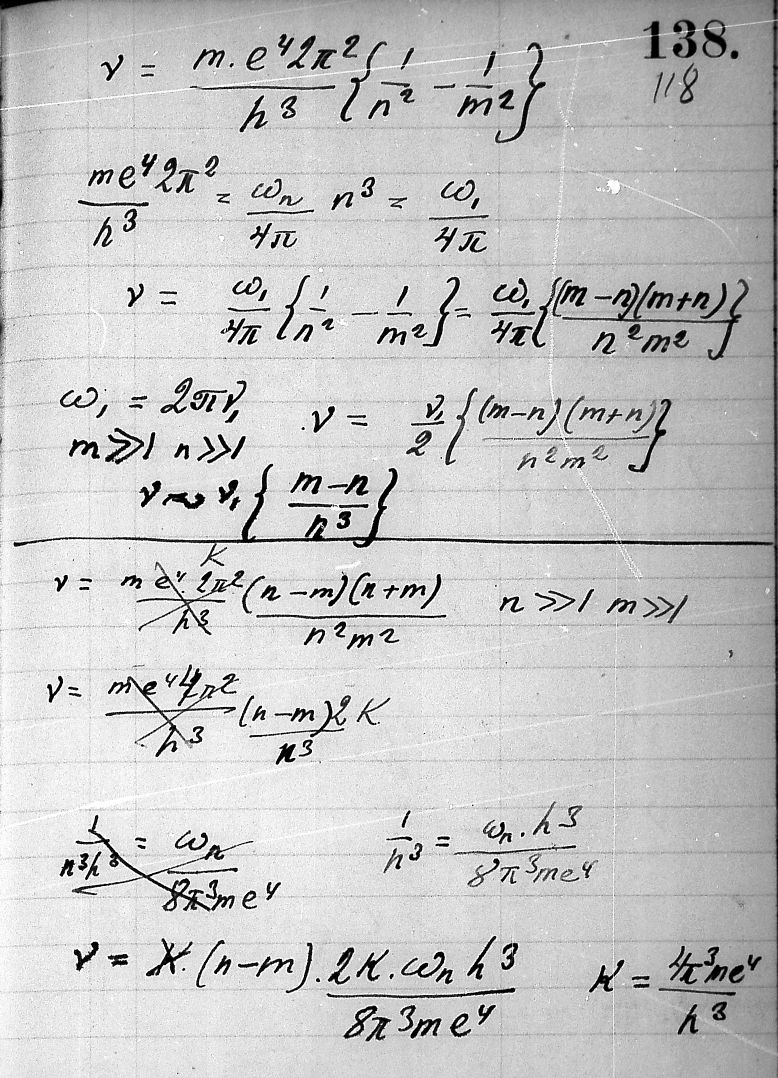 138.
118
ν = m.e⁴2π²/h³ {1/n² − 1/m²}
me⁴2π²/h³ = ωₙ/4π n³ = ω₁/4π
ν = ω₁/4π {1/n² − 1/m²} = ω₁/4π {(m−n)(m+n)/n²m²}
ω₁ = 2πν₁ ν = ν₁/2 {(m−n)(m+n)/n²m²}
m≫1 n≫1
ν ∼ ν₁ {m−n/n³}
K
ν = me⁴.2π²/h³ (n−m)(n+m)/n²m² n≫1 m≫1
ν = me⁴4π²/h³ (n−m)2K/n³
1/n³h³ = ωₙ/8π³me⁴ 1/n³ = ωₙ.h³/8π³me⁴
ν = K.(n−m).2K.ωₙh³/8π³me⁴ K = 4π³me⁴/h³